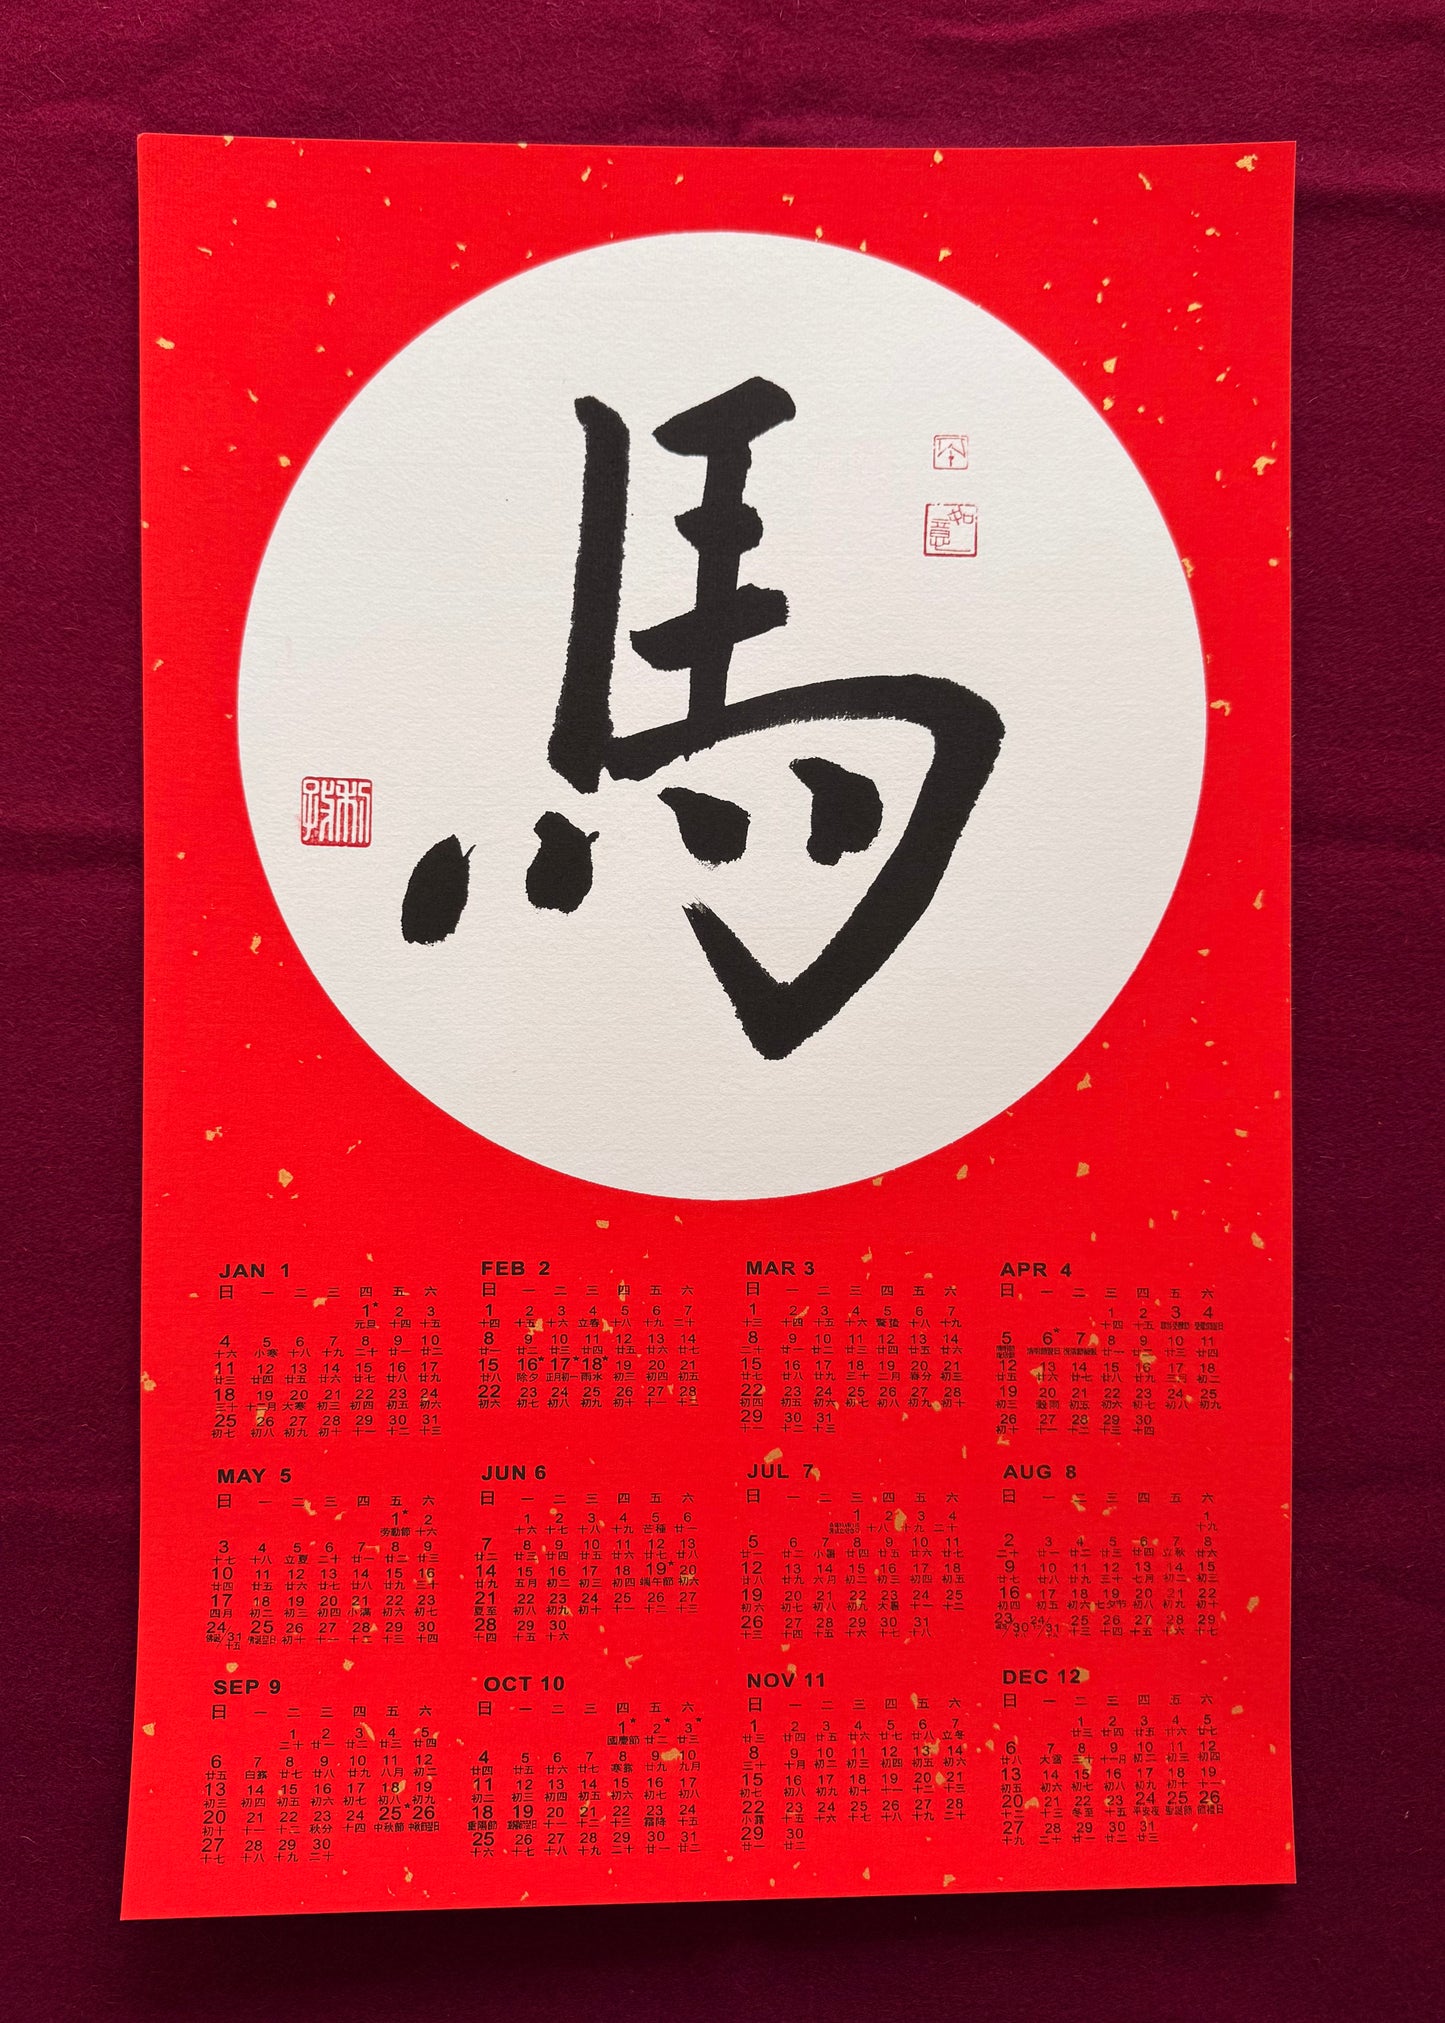 馬
如意
JAN 1
日 一 二 三 四 五 六
1* 2 3
元旦 十四 十五
4 5 6 7 8 9 10
十六 小寒 十八 十九 二十 廿一 廿二
11 12 13 14 15 16 17
廿三 廿四 廿五 廿六 廿七 廿八 廿九
18 19 20 21 22 23 24
三十 十二月 大寒 初三 初四 初五 初六
25 26 27 28 29 30 31
初七 初八 初九 初十 十一 十二 十三
FEB 2
日 一 二 三 四 五 六
1 2 3 4 5 6 7
十四 十五 十六 立春 十八 十九 二十
8 9 10 11 12 13 14
廿一 廿二 廿三 廿四 廿五 廿六 廿七
15 16* 17* 18* 19 20 21
廿八 除夕 正月初一 雨水 初三 初四 初五
22 23 24 25 26 27 28
初六 初七 初八 初九 初十 十一 十二
MAR 3
日 一 二 三 四 五 六
1 2 3 4 5 6 7
十三 十四 十五 十六 驚蟄 十八 十九
8 9 10 11 12 13 14
二十 廿一 廿二 廿三 廿四 廿五 廿六
15 16 17 18 19 20 21
廿七 廿八 廿九 三十 二月 春分 初三
22 23 24 25 26 27 28
初四 初五 初六 初七 初八 初九 初十
29 30 31
十一 十二 十三
APR 4
日 一 二 三 四 五 六
1 2 3 4
十四 十五
5 6* 7 8 9 10 11
廿一 廿二 廿三 廿四
12 13 14 15 16 17 18
廿五 廿六 廿七 廿八 廿九 三月 初二
19 20 21 22 23 24 25
初三 穀雨 初五 初六 初七 初八 初九
26 27 28 29 30
初十 十一 十二 十三 十四
MAY 5
日 一 二 三 四 五 六
1* 2
勞動節 十六
3 4 5 6 7 8 9
十七 十八 立夏 二十 廿一 廿二 廿三
10 11 12 13 14 15 16
廿四 廿五 廿六 廿七 廿八 廿九 三十
17 18 19 20 21 22 23
四月 初二 初三 初四 小滿 初六 初七
24/31 25 26 27 28 29 30
佛誕/十五 佛誕翌日 初十 十一 十二 十三 十四
JUN 6
日 一 二 三 四 五 六
1 2 3 4 5 6
十六 十七 十八 十九 芒種 廿一
7 8 9 10 11 12 13
廿二 廿三 廿四 廿五 廿六 廿七 廿八
14 15 16 17 18 19* 20
廿九 五月 初二 初三 初四 端午節 初六
21 22 23 24 25 26 27
夏至 初八 初九 初十 十一 十二 十三
28 29 30
十四 十五 十六
JUL 7
日 一 二 三 四 五 六
1 2 3 4
十八 十九 二十
5 6 7 8 9 10 11
廿一 廿二 小暑 廿四 廿五 廿六 廿七
12 13 14 15 16 17 18
廿八 廿九 六月 初二 初三 初四 初五
19 20 21 22 23 24 25
初六 初七 初八 初九 大暑 十一 十二
26 27 28 29 30 31
十三 十四 十五 十六 十七 十八
AUG 8
日 一 二 三 四 五 六
1
十九
2 3 4 5 6 7 8
二十 廿一 廿二 廿三 廿四 立秋 廿六
9 10 11 12 13 14 15
廿七 廿八 廿九 三十 七月 初二 初三
16 17 18 19 20 21 22
初四 初五 初六 七夕节 初八 初九 初十
23/30 24/31 25 26 27 28 29
十三 十四 十五 十六 十七
SEP 9
日 一 二 三 四 五 六
1 2 3 4 5
二十 廿一 廿二 廿三 廿四
6 7 8 9 10 11 12
廿五 白露 廿七 廿八 廿九 八月 初二
13 14 15 16 17 18 19
初三 初四 初五 初六 初七 初八 初九
20 21 22 23 24 25* 26
初十 十一 十二 秋分 十四 中秋節 中秋節翌日
27 28 29 30
十七 十八 十九 二十
OCT 10
日 一 二 三 四 五 六
1* 2* 3*
國慶節 廿二 廿三
4 5 6 7 8 9 10
廿四 廿五 廿六 廿七 寒露 廿九 九月
11 12 13 14 15 16 17
初二 初三 初四 初五 初六 初七 初八
18 19 20 21 22 23 24
重陽節 重陽節翌日 十一 十二 十三 霜降 十五
25 26 27 28 29 30 31
十六 十七 十八 十九 二十 廿一 廿二
NOV 11
日 一 二 三 四 五 六
1 2 3 4 5 6 7
廿三 廿四 廿五 廿六 廿七 廿八 立冬
8 9 10 11 12 13 14
三十 十月 初二 初三 初四 初五 初六
15 16 17 18 19 20 21
初七 初八 初九 初十 十一 十二 十三
22 23 24 25 26 27 28
小雪 十五 十六 十七 十八 十九 二十
29 30
廿一 廿二
DEC 12
日 一 二 三 四 五 六
1 2 3 4 5
廿三 廿四 廿五 廿六 廿七
6 7 8 9 10 11 12
廿八 大雪 三十 十一月 初二 初三 初四
13 14 15 16 17 18 19
初五 初六 初七 初八 初九 初十 十一
20 21 22 23 24 25 26
十二 十三 冬至 十五 平安夜 聖誕節 節禮日
27 28 29 30 31
十九 二十 廿一 廿二 廿三